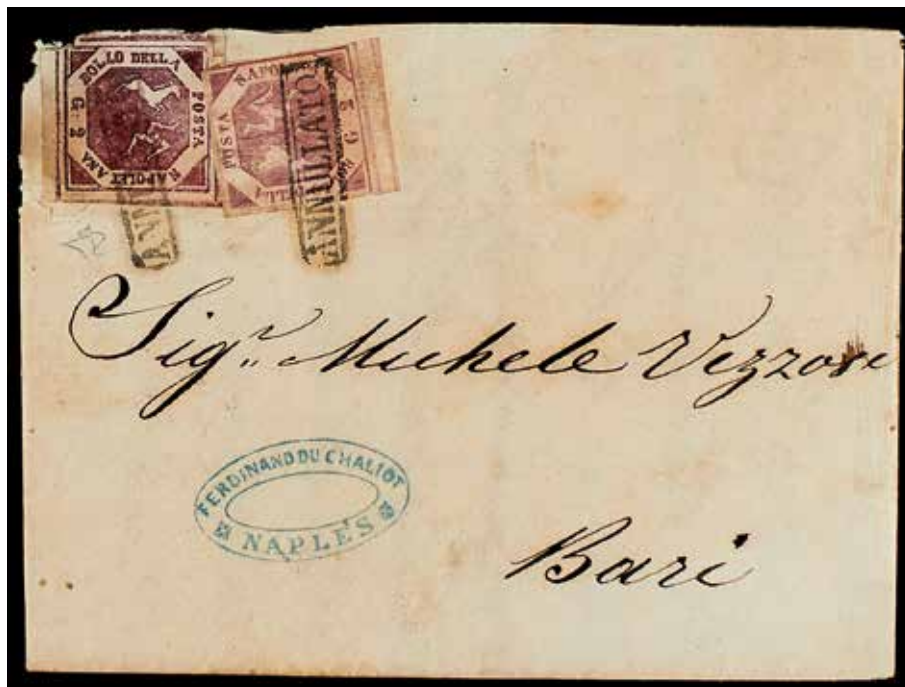 BOLLO DELLA
POSTA
NAPOLETANA
G. 2
POSTA NAPO
G 2
ANNULLATO
ANNU
Sigr. Michele Vezzosi
FERDINAND DU CHALIOT
NAPLES
Bari